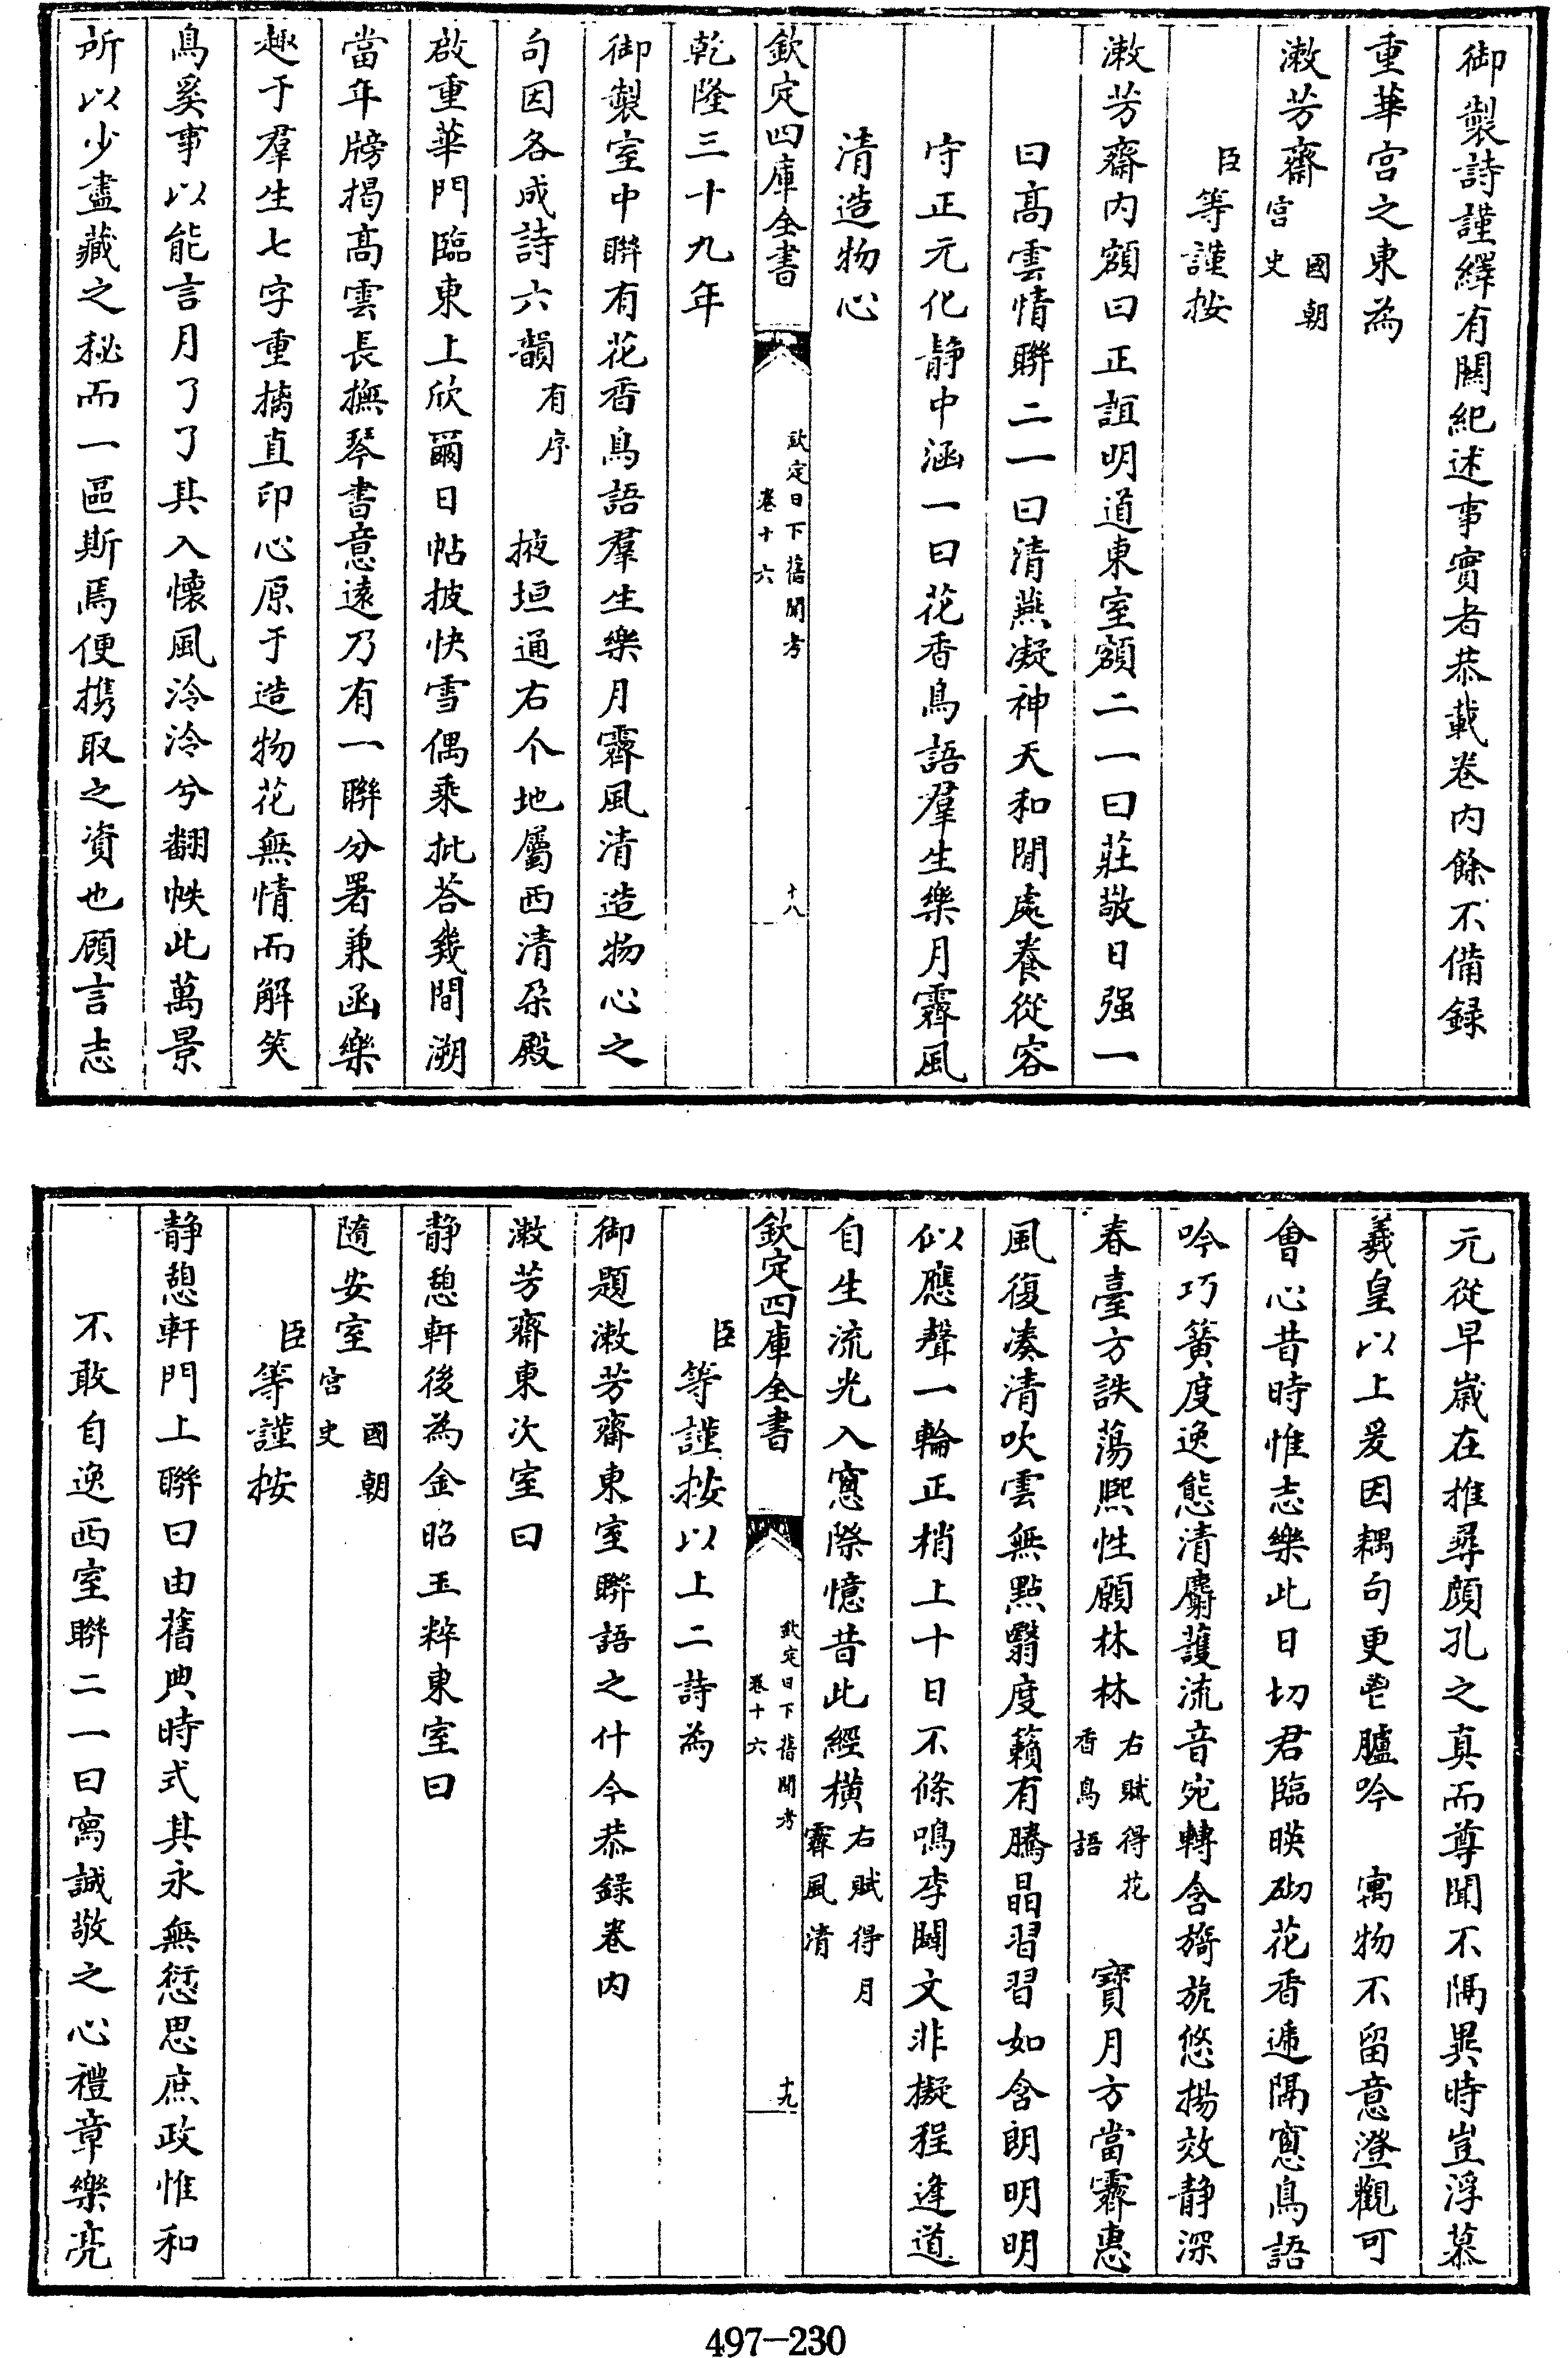 御製詩謹繹有關紀述事實者恭載卷内餘不備録
重華宫之東為
漱芳齋國朝宫史
臣等謹按
漱芳齋内額曰正誼明道東室額二一曰莊敬日强一
曰髙雲情聯二一曰清燕凝神天和閒處養從容
守正元化静中涵一曰花香鳥語羣生樂月霽風
清造物心
欽定四庫全書
欽定日下舊聞考
卷十六
十八
乾隆三十九年
御製室中聯有花香鳥語羣生樂月霽風清造物心之
句因各成詩六韻有序 掖垣通右个地屬西清朵殿
啟重華門臨東上欣爾日帖披快雪偶乘批荅幾間溯
當年牓揭髙雲長撫琴書意遠乃有一聯分署兼函樂
趣于羣生七字重摛直印心原于造物花無情而解笑
鳥奚事以能言月了了其入懷風泠泠兮翻帙此萬景
所以少盡藏之秘而一區斯焉便携取之資也顧言志
元從早歲在推尋顔孔之真而尊聞不隔異時豈浮慕
羲皇以上爰因耦句更疊臚吟 寓物不留意澄觀可
會心昔時惟志樂此日切君臨暎砌花香遞隔窻鳥語
吟巧簧度逸態清麝護流音宛轉含旖旎悠揚效静深
春臺方詄蕩熙性願林林右賦得花香鳥語 寳月方當霽惠
風復凑清吹雲無點翳度籟有騰晶習習如含朗明明
似應聲一輪正梢上十日不條鳴李闢文非擬程逢道
自生流光入窻際憶昔此經横右賦得月霽風清
欽定四庫全書
欽定日下舊聞考
卷十六
十九
臣等謹按以上二詩為
御題漱芳齋東室聯語之什今恭録卷内
漱芳齋東次室曰
静憩軒後為金昭玉粹東室曰
随安室國朝宫史
臣等謹按
静憩軒門上聯曰由舊典時式其永無愆思庶政惟和
不敢自逸西室聯二一曰寫誠敬之心禮章樂亮
497—230